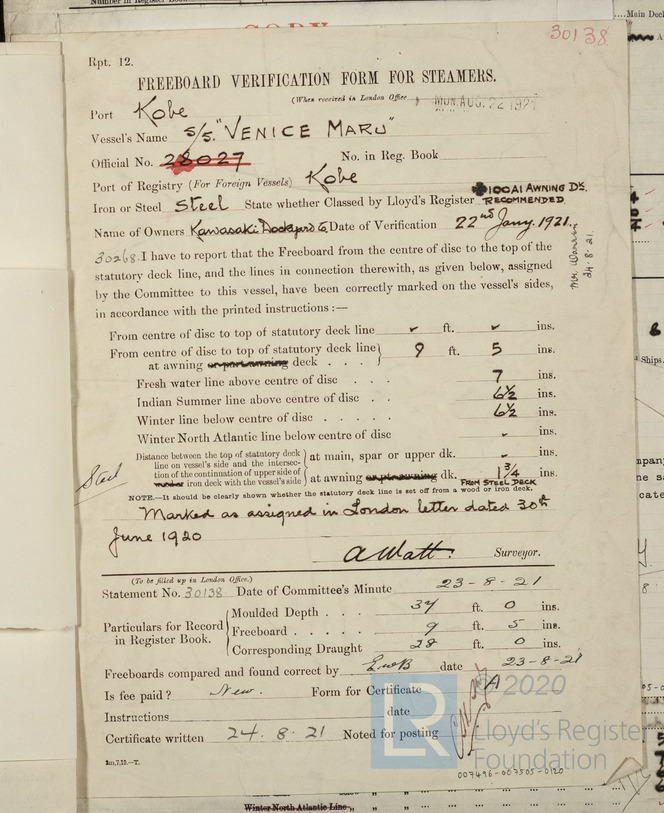 Number in Register Book
COPY
30138
Main Deck
Rpt. 12.
FREEBOARD VERIFICATION FORM FOR STEAMERS.
(When received in London Office MON. AUG. 22 1921
Port Kobe
Vessel's Name s/s. "VENICE MARU"
Official No. 28027 No. in Reg. Book
Port of Registry (For Foreign Vessels) Kobe
Iron or Steel Steel State whether Classed by Lloyd's Register 100A1 AWNING DK. RECOMMENDED
Name of Owners Kawasaki Dockyard Co Date of Verification 22nd Jany. 1921.
30268 I have to report that the Freeboard from the centre of disc to the top of the
statutory deck line, and the lines in connection therewith, as given below, assigned
by the Committee to this vessel, have been correctly marked on the vessel's sides,
in accordance with the printed instructions :—
24.8.21.
From centre of disc to top of statutory deck line ft. ins.
From centre of disc to top of statutory deck line } 9 ft. 5 ins.
at awning or part awning deck . . .
Fresh water line above centre of disc . . . 7 ins.
Indian Summer line above centre of disc . . 6½ ins.
Winter line below centre of disc . . . . . 6½ ins.
Winter North Atlantic line below centre of disc - ins.
Distance between the top of statutory deck line on vessel's side and the intersection of the continuation of upper side of iron deck with the vessel's side } at main, spar or upper dk. - ins.
at awning or pt. awning dk. 1 3/4 ins.
FROM STEEL DECK
Steel
NOTE.—It should be clearly shown whether the statutory deck line is set off from a wood or iron deck.
Marked as assigned in London letter dated 30th
June 1920
A Watt. Surveyor.
(To be filled up in London Office.)
Statement No. 30138 Date of Committee's Minute 23-8-21
Particulars for Record in Register Book. { Moulded Depth . . . 37 ft. 0 ins.
Freeboard . . . . . 9 ft. 5 ins.
Corresponding Draught 28 ft. 0 ins.
Freeboards compared and found correct by EWB date 23-8-21
Is fee paid? New. Form for Certificate
Instructions date
Certificate written 24.8.21 Noted for posting
2m,7,19.—T.
LR
© 2020
Lloyd's Register
Foundation
007496-007505-0120
Winter North Atlantic Line